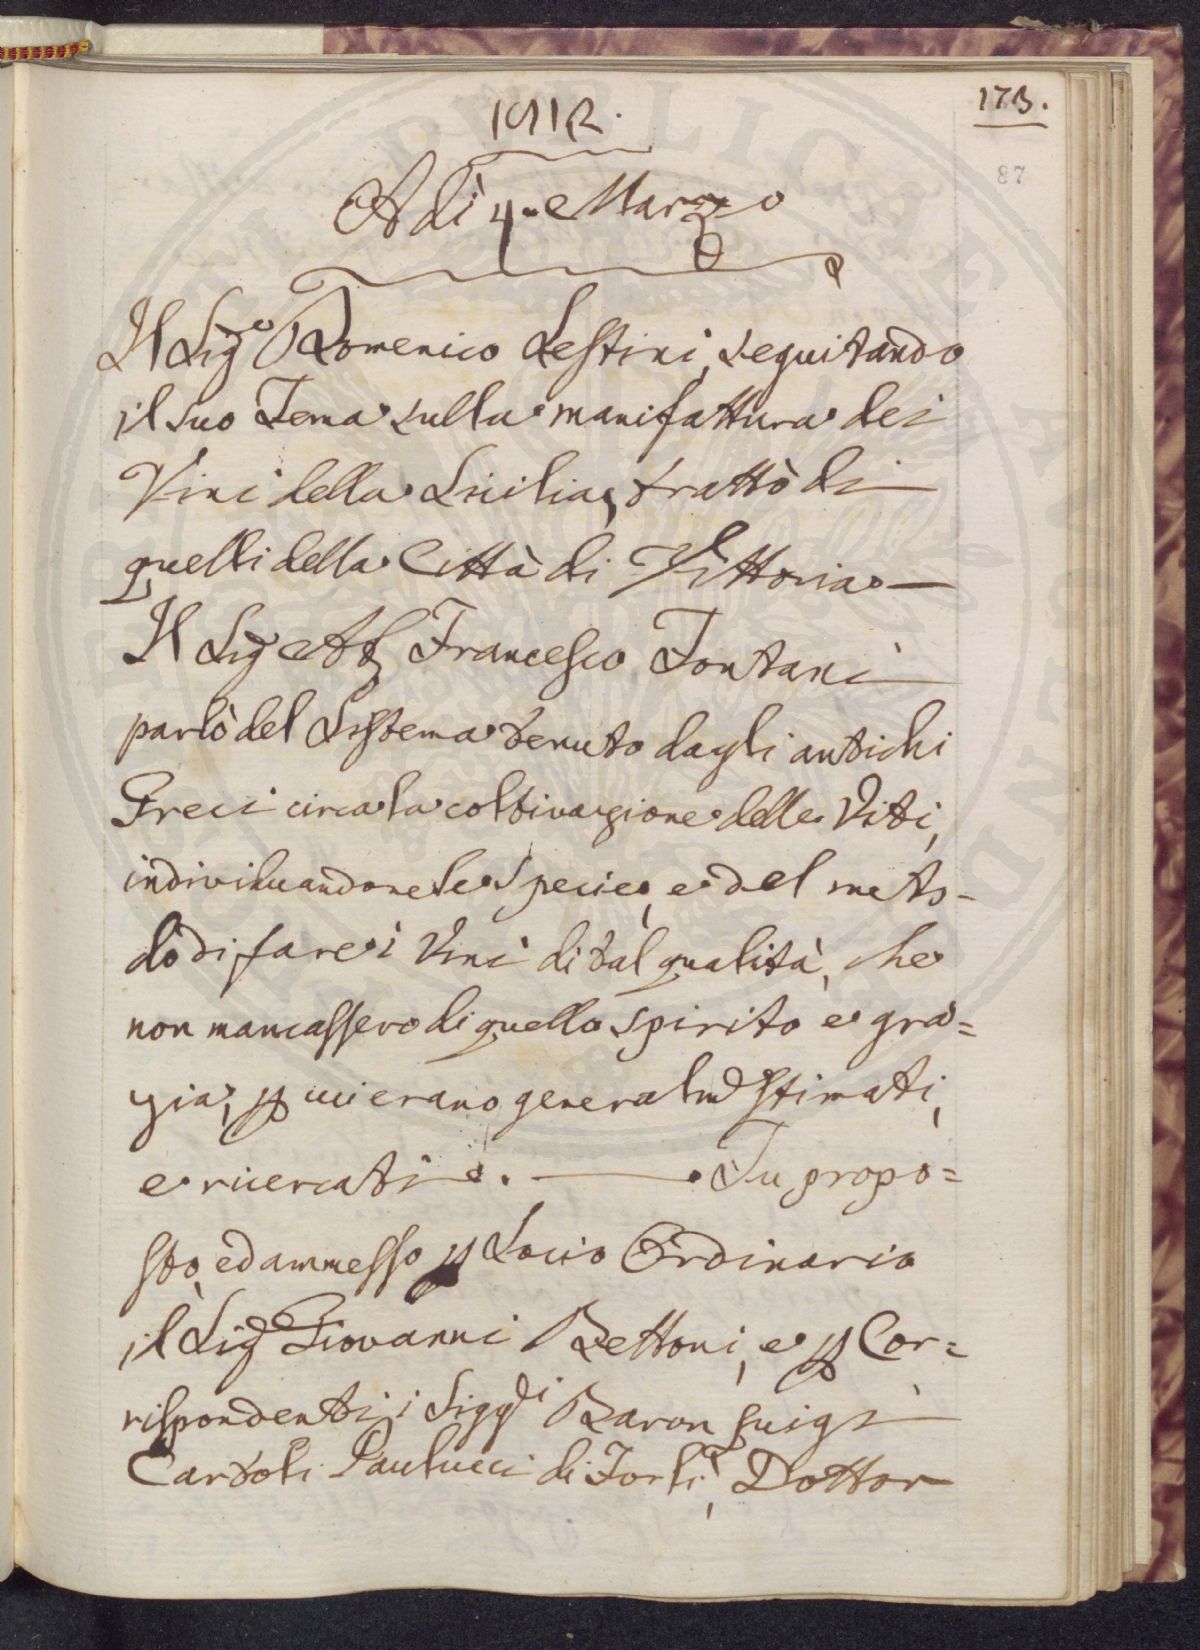 173.
87
1812.
Adì 4. Marzo
Il Sig.e Domenico Sestini, seguitando
il suo Tema sulla manifattura dei
Vini della Sicilia, trattò di
quelli della Città di Vittoria —
Il Sig.e Ab. Francesco Fontani
parlò del Sistema tenuto dagli antichi
Greci circa la coltivazione delle Viti,
individuandone le Specie, e del meto-
do di fare i Vini di tal qualità, che
non mancassero di quello spirito e gra=
zia, p cui erano generalm.e stimati,
e ricercati. — Fu propo=
sto, ed ammesso p Socio Ordinario
il Sig.e Giovanni Bettoni, e p Cor=
rispondenti i Sigg.ri Baron Luigi
Cartoli Paulucci di Forlì, Dottor